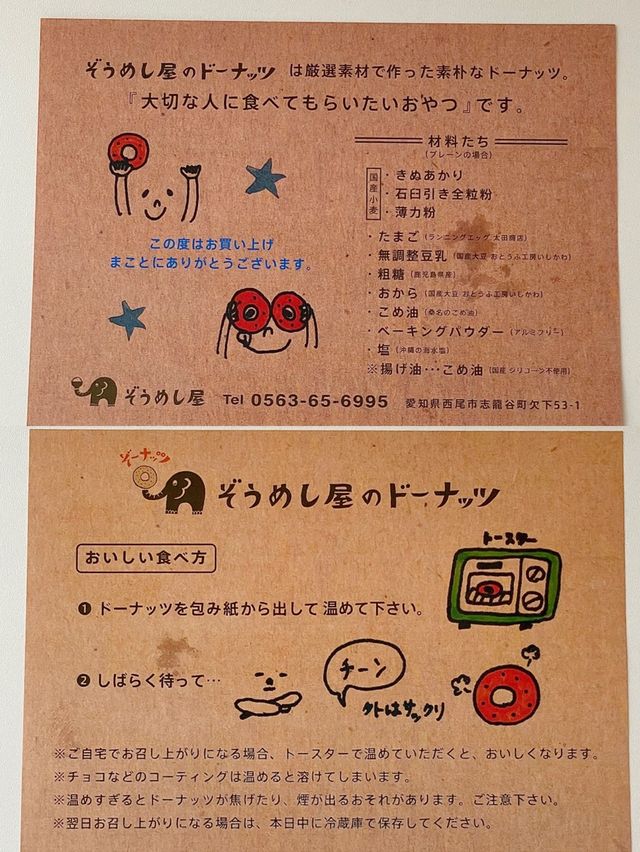 ぞうめし屋のドーナッツ は厳選素材で作った素朴なドーナッツ。
『大切な人に食べてもらいたいおやつ』です。
材料たち
(プレーンの場合)
国産小麦
・きぬあかり
・石臼引き全粒粉
・薄力粉
・たまご(ランニングエッグ 太田商店)
・無調整豆乳(国産大豆 おとうふ工房いしかわ)
・粗糖(鹿児島県産)
・おから(国産大豆 おとうふ工房いしかわ)
・こめ油(桑名のこめ油)
・ベーキングパウダー(アルミフリー)
・塩(沖縄の海水塩)
※揚げ油…こめ油(国産 シリコーン不使用)
この度はお買い上げ
まことにありがとうございます。
ぞうめし屋 Tel 0563-65-6995 愛知県西尾市志籠谷町欠下53-1
ぞーナッツ
ぞうめし屋のドーナッツ
おいしい食べ方
トースター
❶ ドーナッツを包み紙から出して温めて下さい。
❷ しばらく待って…
チーン
外はサックリ
※ご自宅でお召し上がりになる場合、トースターで温めていただくと、おいしくなります。
※チョコなどのコーティングは温めると溶けてしまいます。
※温めすぎるとドーナッツが焦げたり、煙が出るおそれがあります。ご注意下さい。
※翌日お召し上がりになる場合は、本日中に冷蔵庫で保存してください。